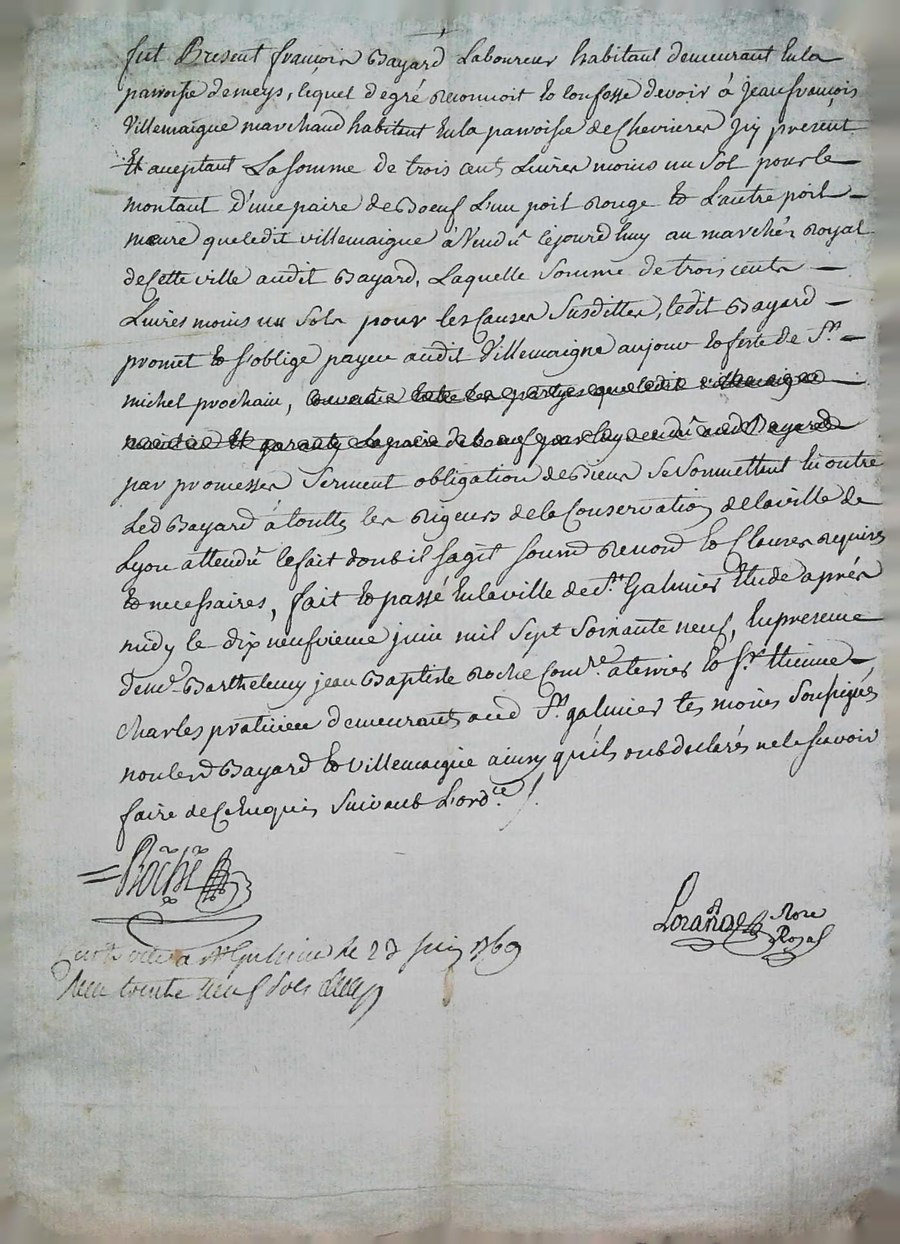 fut Present françois Bayard Laboureur habitant demeurant En la
parroisse de meys, lequel de gré reconnoit Et Confesse devoir à Jean françois
Villemaigne marchand habitant En la parroisse de Chevrieres Icy présent
Et aceptant La somme de trois cent Livres moins un Sol pour le
montant d'une paire de Boeuf L'un poil Rouge Et L'autre poil
meure que ledit villemaigne à Vendû Cejourd'huy au marchér Royal
de Cette ville audit Bayard, Laquelle Somme de trois cents
Livres moins un Sols pour les Causes Susdittes, ledit Bayard
promet Et s'oblige payer audit Villemaigne au jour Et feste de St.
michel prochain, Entre les partyes que ledit villemaigne
Et garanty la paire de boeuf par luy vendû aud. Bayard
par promesses Serment obligation de Biens Se Soumettant En outre
Led Bayard à touttes les Rigeurs de la Conservation de la ville de
Lyon attendû le fait dont il s'agit Soumd Renond Et Clauses requises
Et necessaires, fait Et passé En la ville de St. Galmier Etude après
midy le dix neufvieme juin mil Sept Soixante neuf, En presence
de md. Barthelemy jean Baptiste Roche Comre. a terrier Et Sr. Etienne
Charles praticien demeurants aud St. galmier temoins Soussignés
non led Bayard Et villemaigne ainsy qu'ils ont declarés ne le scavoir
faire de Ce Enquis Suivant L'ordce.
Roche
Lorange Nore
Royal
Controllé a St Galmier le 23 juin 1769
Reçu trente neuf Sols